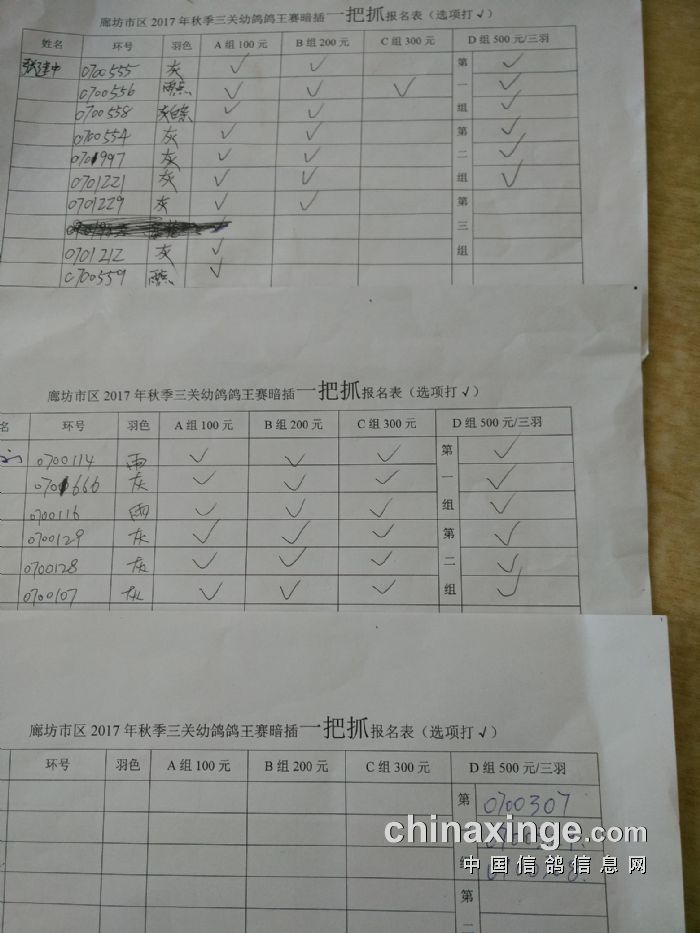 廊坊市区 2017 年秋季三关幼鸽鸽王赛暗插一把抓报名表（选项打√）
姓名 环号 羽色 A 组 100 元 B 组 200 元 C 组 300 元 D 组 500 元/三羽
张建中 0700555 灰 ✓ ✓ 第 ✓
0700556 雨点 ✓ ✓ ✓ 一 ✓
0700558 ✓ ✓ 组 ✓
0700554 灰 ✓ ✓ 第 ✓
0701997 灰 ✓ ✓ 二 ✓
0701221 灰 ✓ ✓ 组 ✓
0701229 灰 ✓ ✓ 第
三
0701212 灰 ✓ 组
0700559 雨点 ✓
廊坊市区 2017 年秋季三关幼鸽鸽王赛暗插一把抓报名表（选项打√）
名 环号 羽色 A 组 100 元 B 组 200 元 C 组 300 元 D 组 500 元/三羽
0700114 雨 ✓ ✓ ✓ 第 ✓
0701666 灰 ✓ ✓ ✓ 一 ✓
0700116 雨 ✓ ✓ ✓ 组 ✓
0700129 灰 ✓ ✓ ✓ 第 ✓
0700128 灰 ✓ ✓ ✓ 二 ✓
0700107 灰 ✓ ✓ ✓ 组 ✓
廊坊市区 2017 年秋季三关幼鸽鸽王赛暗插一把抓报名表（选项打√）
环号 羽色 A 组 100 元 B 组 200 元 C 组 300 元 D 组 500 元/三羽
第 0700307
chinaxinge.com
组
中国信鸽信息网
第